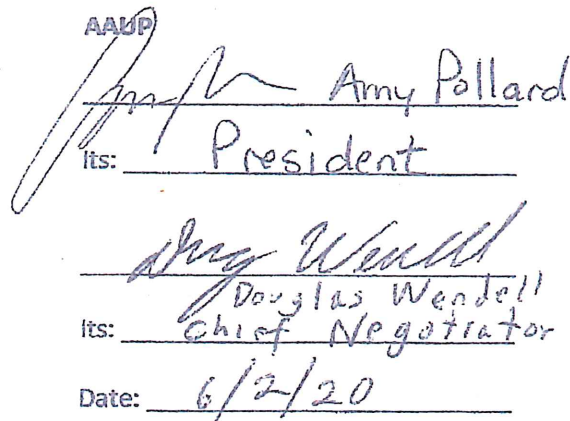 AAUP
Amy Pollard
Its: President
Doug Wendell
Douglas Wendell
Its: Chief Negotiator
Date: 6/2/20